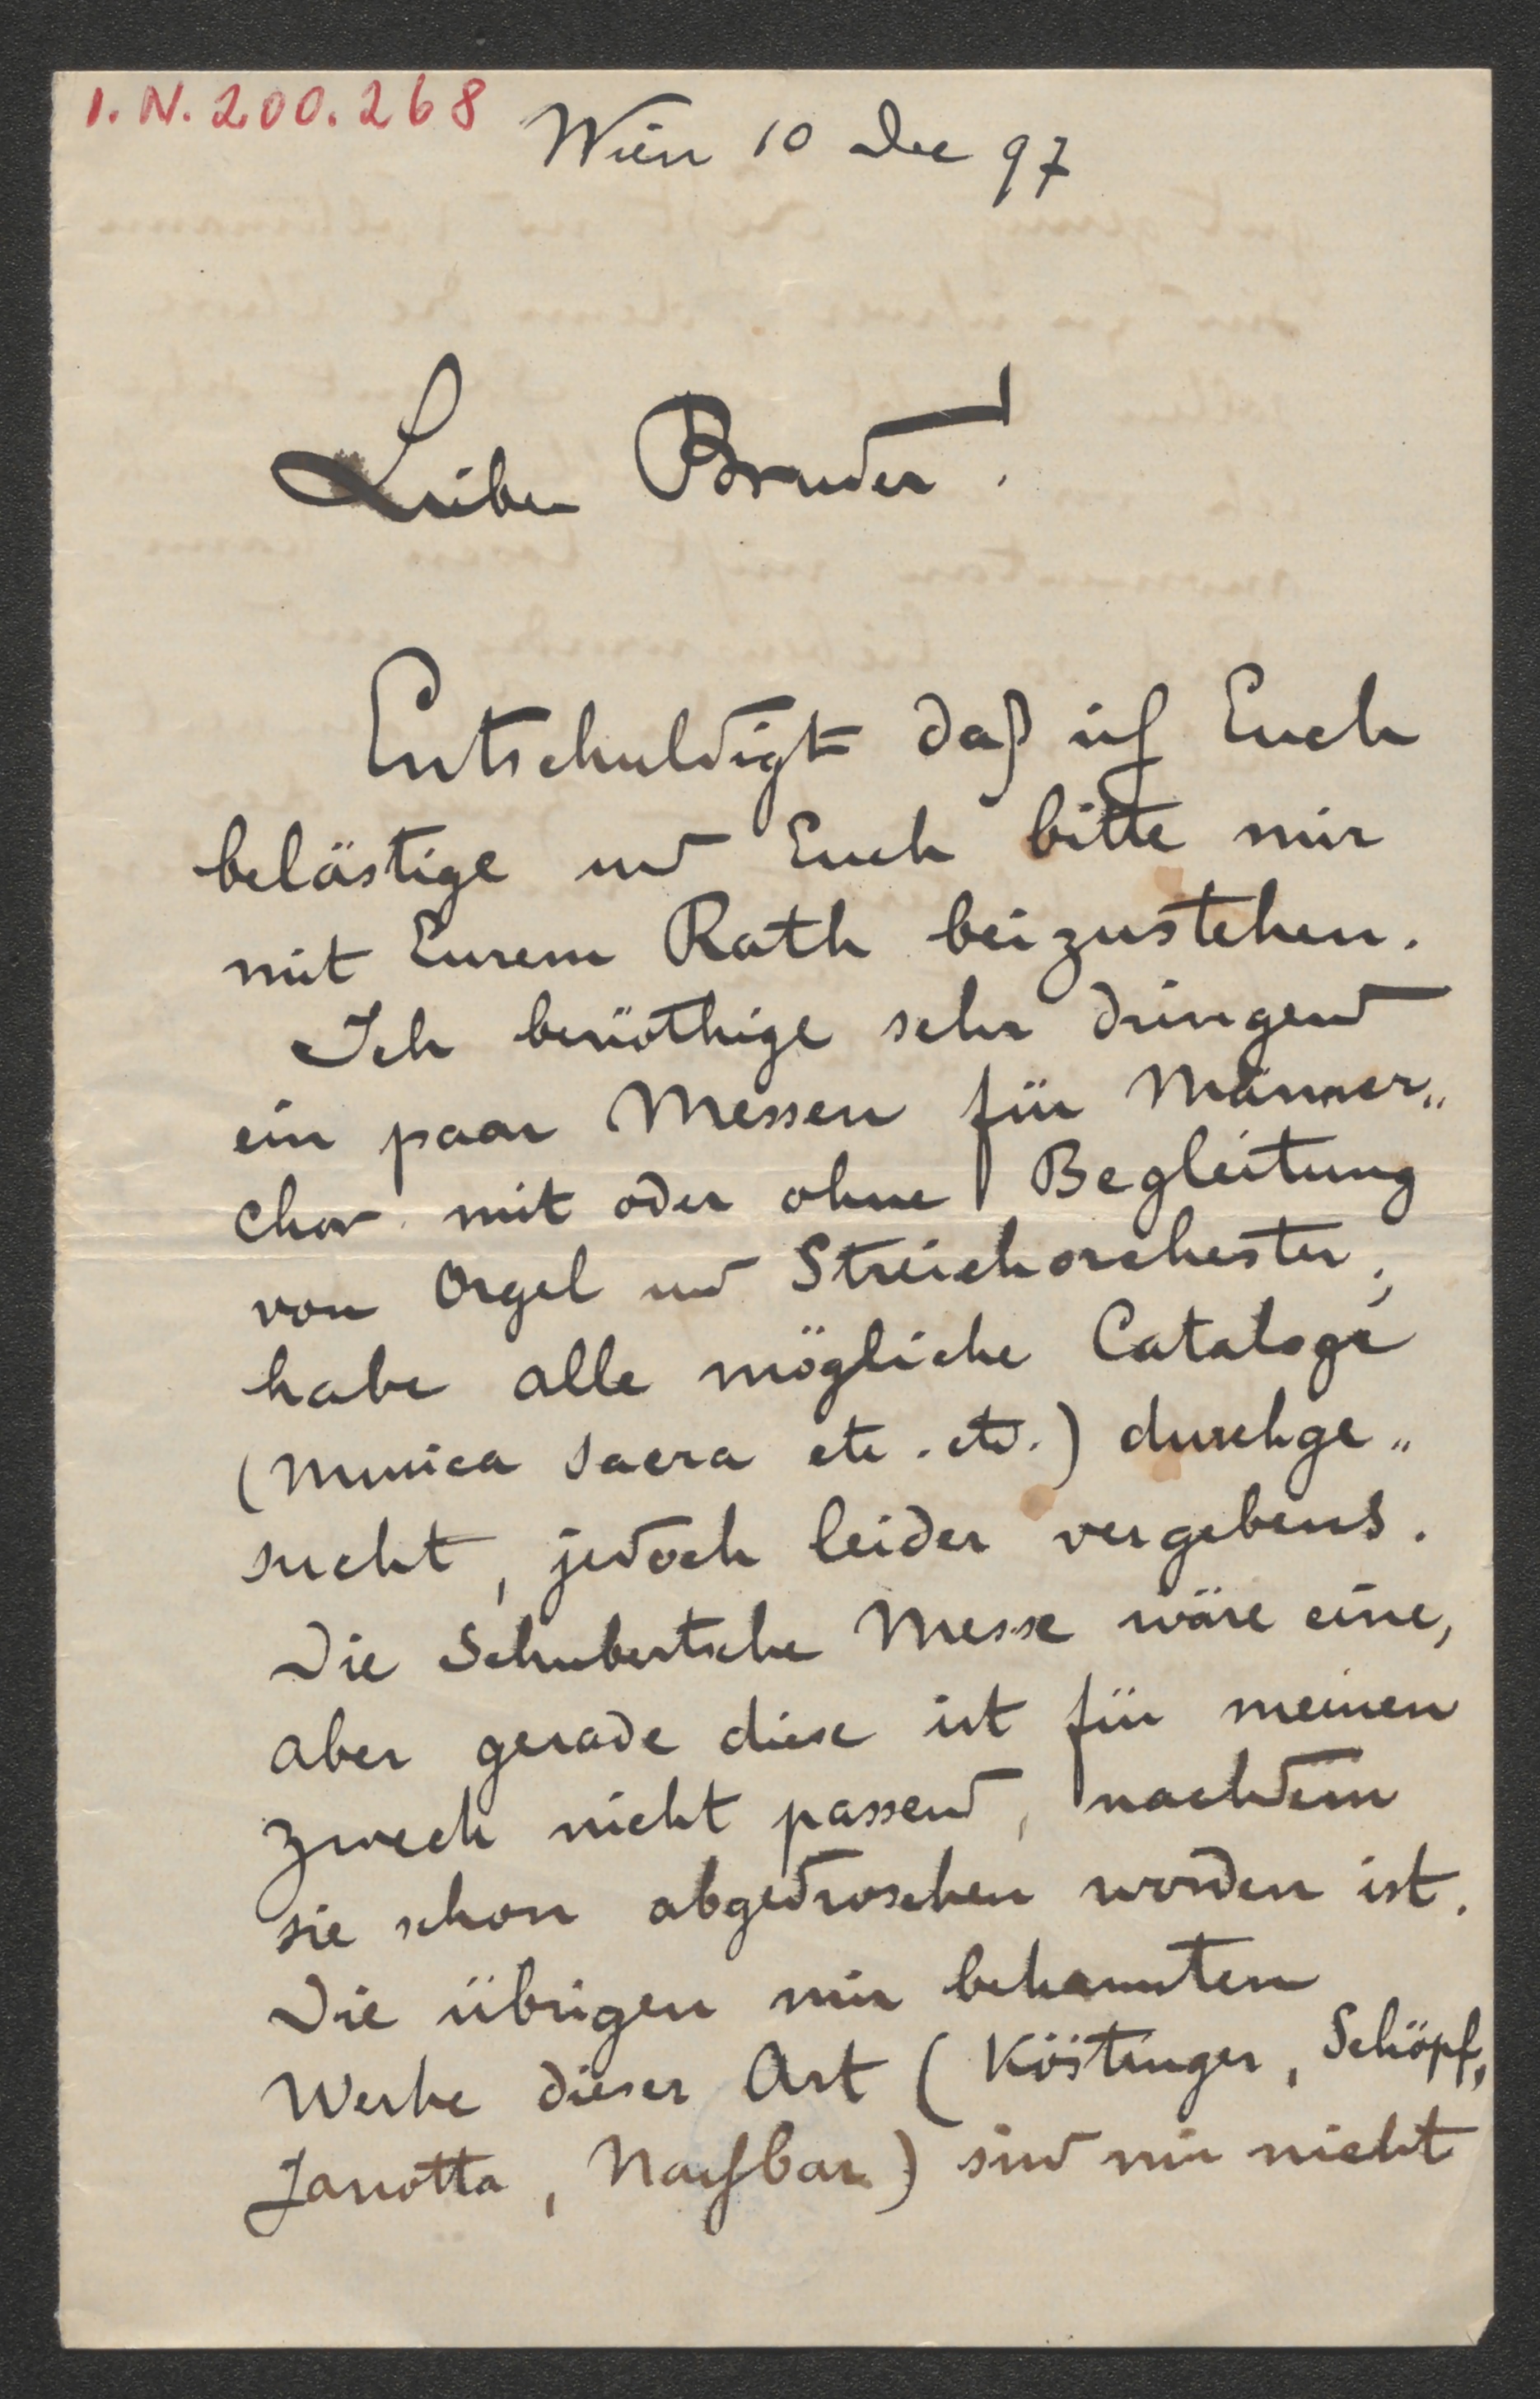 I.N. 200.268
Wien 10 Dec 97
Lieber Bruder!
Entschuldigt daß ich Euch
belästige und Euch bitte mir
mit Eurem Rath beizustehen.
Ich benöthige sehr dringend
ein paar Messen für Männer„
chor mit oder ohne Begleitung
von Orgel und Streichorchester;
habe alle mögliche Cataloge
(Musica sacra etc. etc.) durchge„
sucht, jedoch leider vergebens.
Die Schubertsche Messe wäre eine,
aber gerade diese ist für meinen
Zweck nicht passend, nachdem
sie schon abgedroschen worden ist.
Die übrigen mir bekannten
Werke dieser Art (Köstinger, Schöpf,
Janotta, Nachbar) sind mir nicht